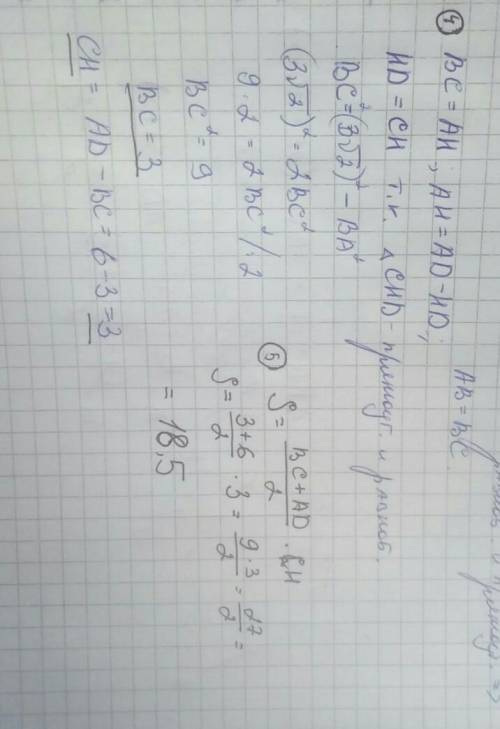 AB = BC
④ BC = AH ; AH = AD - HD ;
HD = CH т.к. △ CHD - прямоуг. и равноб.
BC² = (3√2)² - BA²
(3√2)² = 2BC²
9 · 2 = 2BC² / : 2
BC² = 9
BC = 3
CH = AD - BC = 6 - 3 = 3
⑤ S = \frac{BC + AD}{2} · CH
S = \frac{3+6}{2} · 3 = \frac{9·3}{2} = \frac{27}{2} =
= 18,5